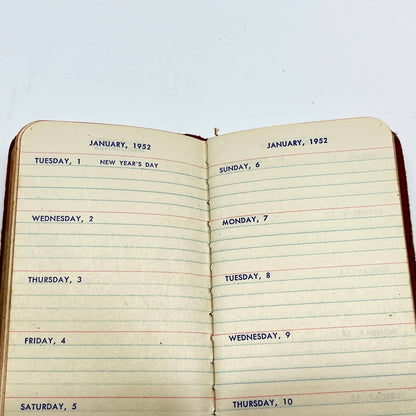 JANUARY, 1952
TUESDAY, 1 NEW YEAR'S DAY
WEDNESDAY, 2
THURSDAY, 3
FRIDAY, 4
SATURDAY, 5
JANUARY, 1952
SUNDAY, 6
MONDAY, 7
TUESDAY, 8
WEDNESDAY, 9
THURSDAY, 10